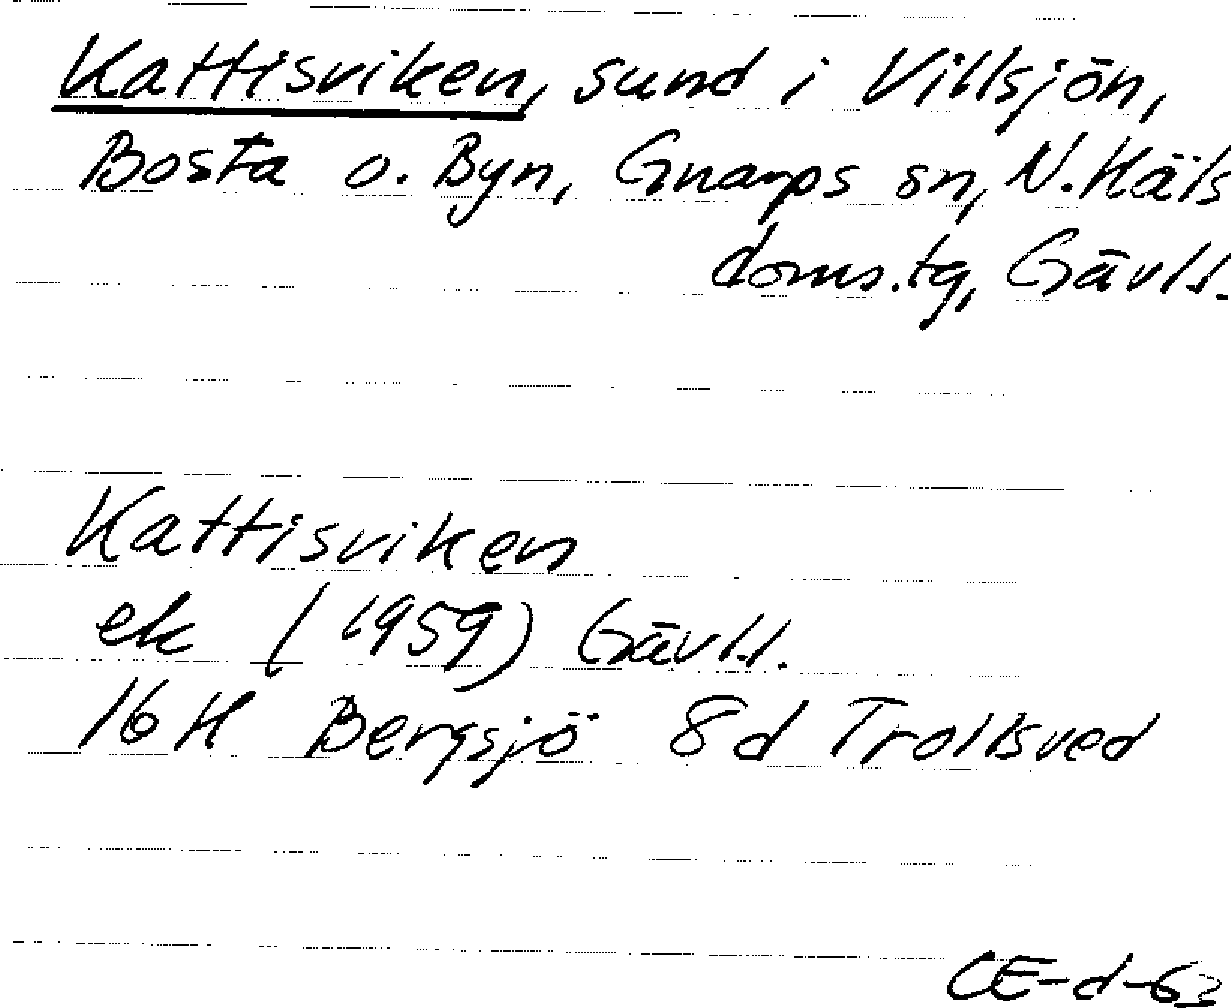 Kattisviken, sund i Villsjön,
Bosta o. Byn, Gnarps sn, N. Häls
doms.tg, Gävl.l.
Kattisviken
ek (1959) Gävl.l.
16 H Bergsjö 8 d Trollsved
CE-d-63